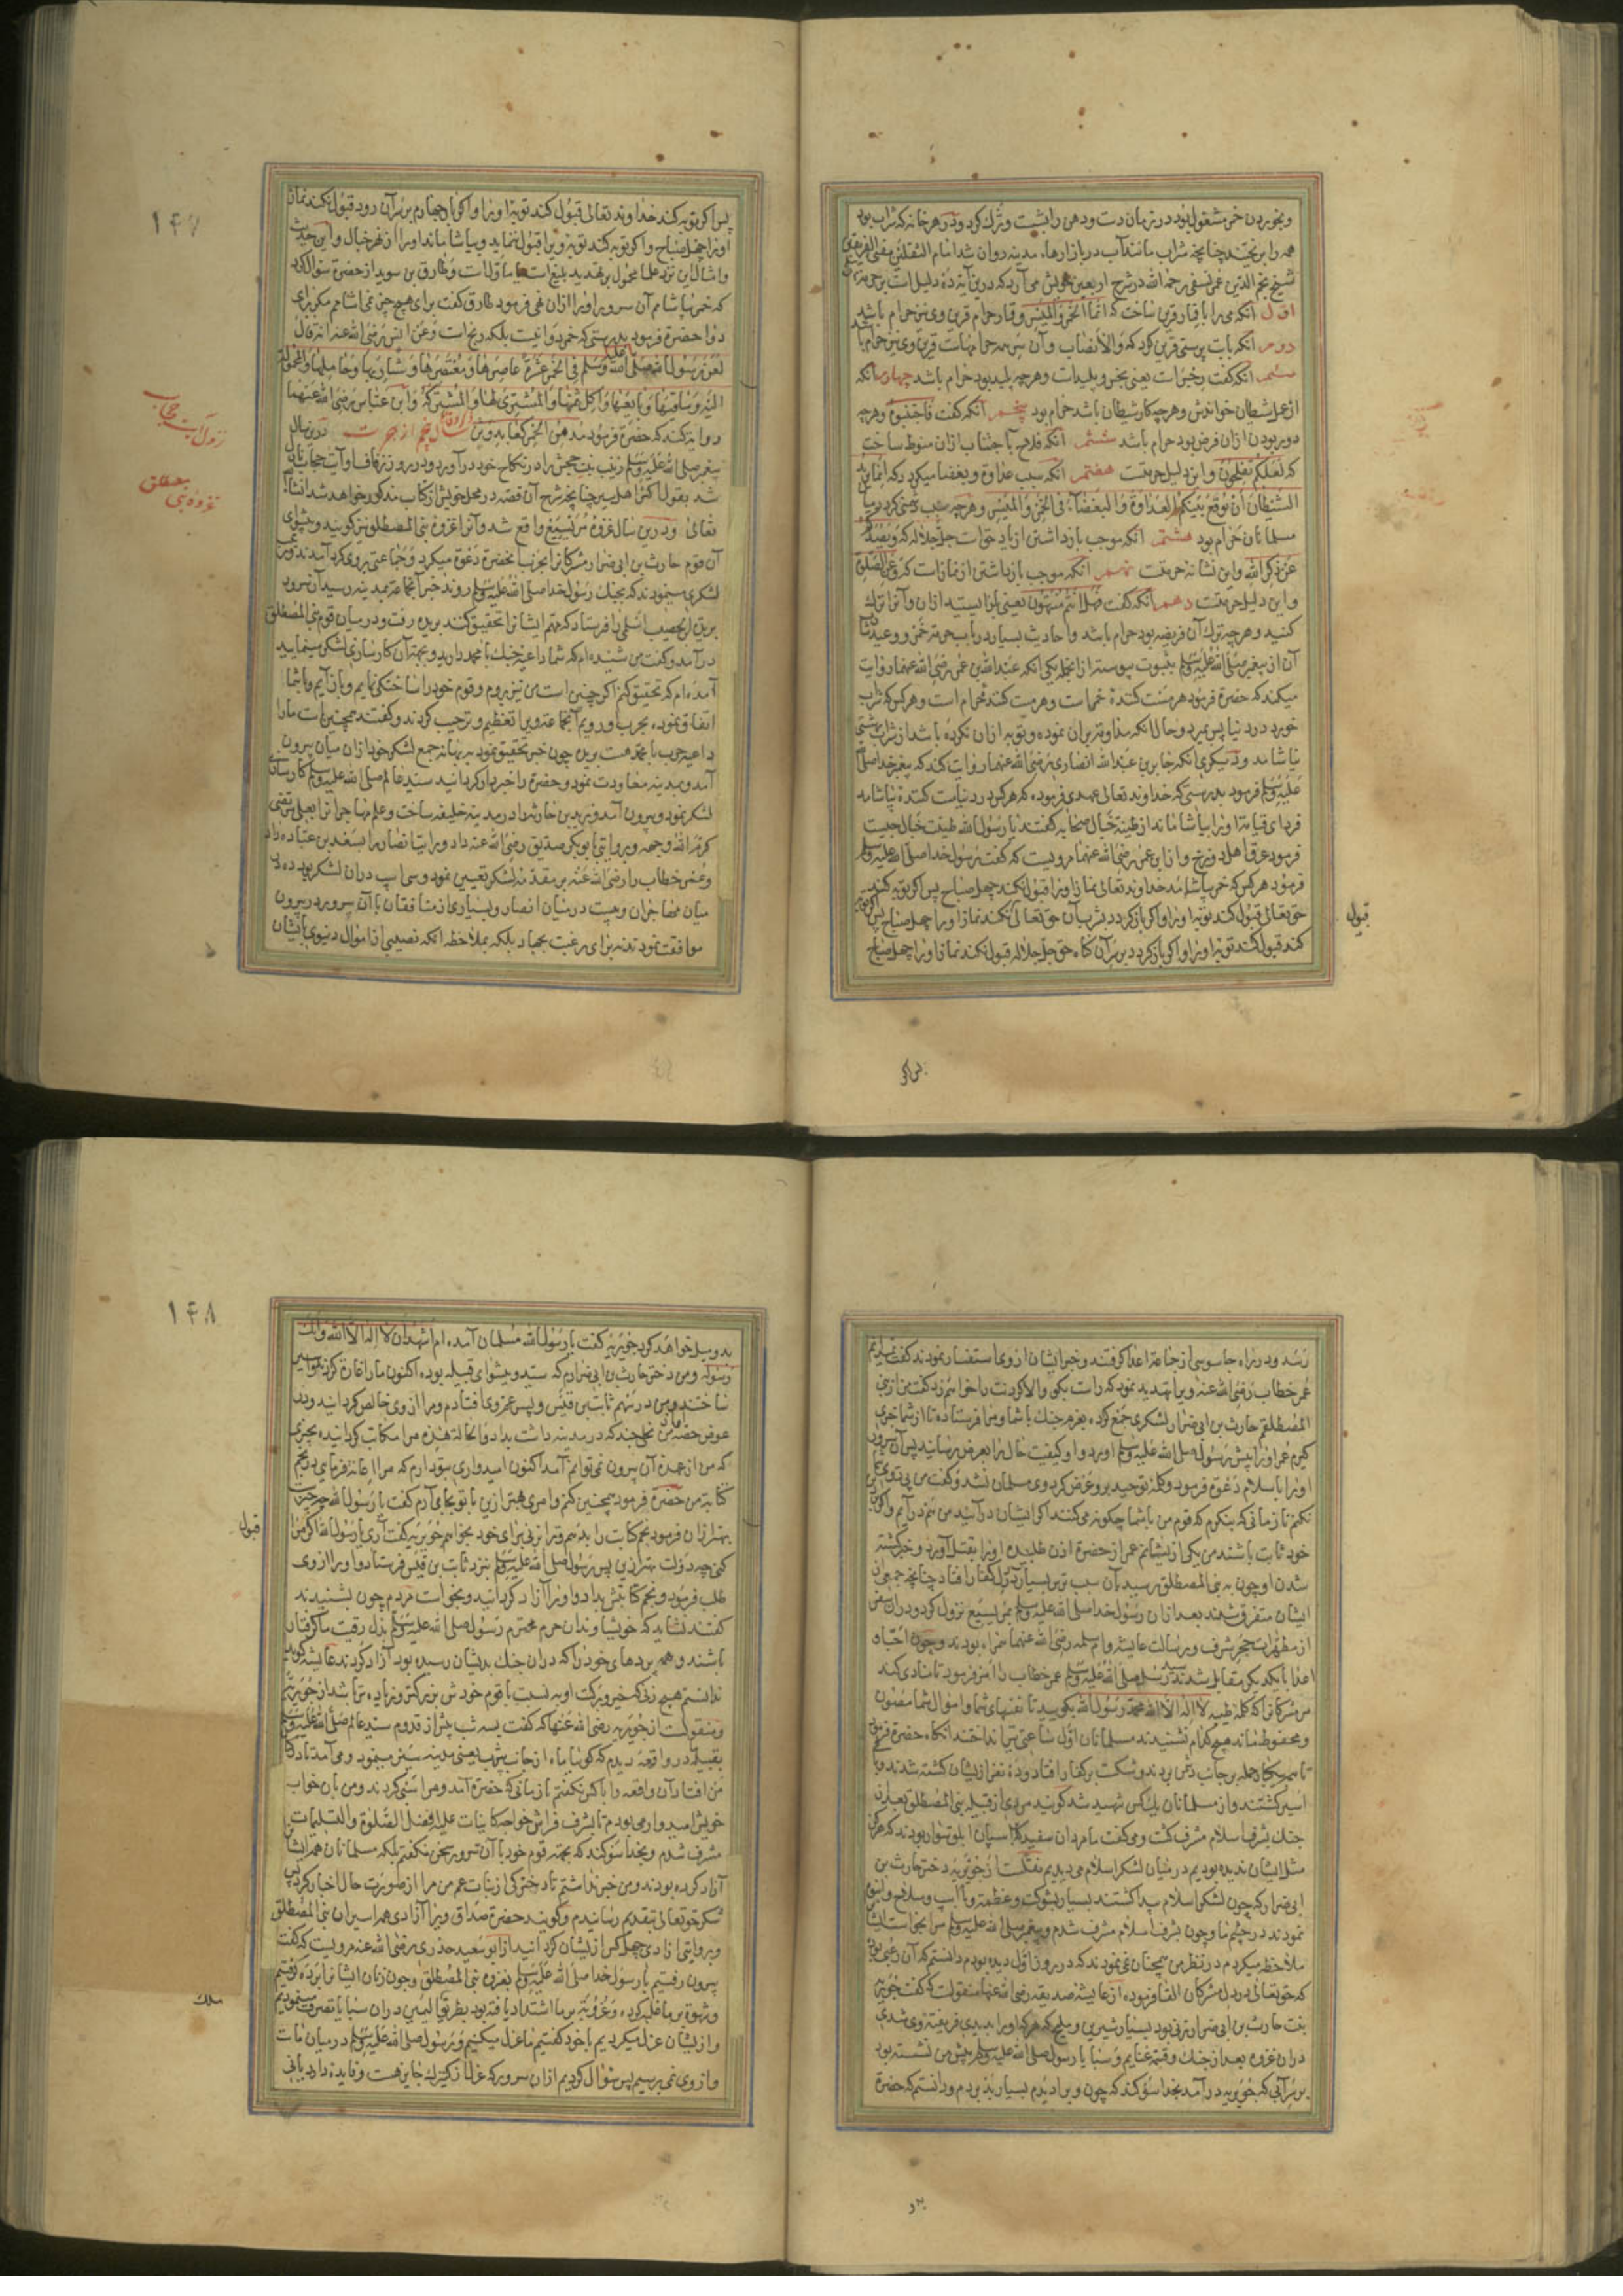 وبخوردن خمر مشغول بود در زمان دست ودهن را بشست وترك كرد ودر هر خانه كه شراب بود
همه را بریختند چنانچه شراب مانند آب در بازارهاء مدینه روان شد امام الثقلین مفتی الفریقین
شیخ نجم الدین عمر نسفی رحمه الله در شرح اربعین خویش می آرد كه درین آیة ده دلیل است بر حرمة
اول انكه می را با قمار قرین ساخت كه انما الخمر والمیسر وقمار حرام قرین وی نیز حرام باشد
دوم انكه با بت پرستی قرین كرد كه والأنصاب وآن سر همه حرامهاست قرین وی نیز حرام
سیم انكه كفت رجس است یعنی نجس وپلیدست وهرچه پلید بود حرام باشد چهارم انكه
از عمل شیطان خواندش وهرچه كار شیطان باشد حرام بود پنجم انكه كفت فاجتنبوه وهرچه
دور بودن ازان فرض بود حرام باشد ششم انكه فلاح با جتناب ازان منوط ساخت
كه لعلكم تفلحون واین دلیل حرمتست هفتم انكه سبب عداوة وبغضا میكردد كه انما یرید
الشیطان أن یوقع بینكم العداوة والبغضاء فی الخمر والمیسر وهرچه سبب دشمنی كردد میان
مسلمانان حرام بود هشتم انكه موجب بازداشتن از یاد حق است جل جلاله كه ویصدكم
عن ذكر الله واین نشانه حرمتست نهم انكه موجب بازداشتن از نماز است كه وعن الصلوة
واین دلیل حرمتست دهم انكه كفت فهل انتم منتهون یعنی باز ایستید ازان وآنرا ترك
كنید وهرچه ترك آن فریضه بود حرام باشد واحادیث بسیار در باب حرمة خمر ووعید
آن از پیغمبر صلی الله علیه وسلم بثبوت پیوسته ازانجمله یكی انكه عبد الله بن عمر رضی الله عنهما روایت
میكند كه حضرة فرمود هر مست كنندۀ خمر است وهر مست كننده حرام است وهر كس كه شراب
خورد در دنیا پس بمیرد وحال انكه مداومة بران نموده وتوبه ازان نكرده باشد از شراب بهشتی
نیاشامد ودیكری انكه جابر بن عبد الله انصاری رضی الله عنهما روایت كند كه پیغمبر خدا صلی الله
علیه وسلم فرمود بدرستی كه خداوند تعالی عهدی فرموده كه هر كس در دنیا مست كننده بیاشامد
فردای قیامة اورا بیاشاماند از طینة خبال صحابه كفتند یا رسول الله طینت خبال چیست
فرمود عرق اهل دوزخ واز ابن عمر رضی الله عنهما مرویست كه كفت رسول خدا صلی الله علیه وسلم
فرمود هر كس كه خمر بیاشامد خداوند تعالی نماز اورا قبول نكند چهل صباح پس اكر توبه كند
حق تعالی قبول كند توبۀ اورا واكر باز كردد بشرب آن حق تعالی نكند نماز اورا چهل صباح پس اكر توبه
كند قبول كند توبۀ اورا واكر باز كردد بر سر آن كناه حق جل جلاله قبول نكند نماز اورا چهل صباح
قبول
پس اكر
۱۴۷
پس اكر توبه كند خداوند تعالی قبول كند توبۀ اورا واكر بار چهارم بر سر آن رود قبول نكند نماز
اورا چهل صباح واكر توبه كند توبه ویرا قبول ننماید وبیاشاماند اورا از نهر خبال واین حدیث
وامثال این نزد علما محمول بر تهدید بلیغ است یا ماوّلات وطارق بن سوید از حضرة سؤال كرد
كه خمر بیاشامم آن سرور اورا ازان نهی فرمود طارق كفت برای هیچ چیز نمی اشامم مكر برای
دوا حضرة فرمود بدرستی كه خمر دوا نیست بلكه رنج است وعن انس رضی الله عنه انه قال
لعن رسول الله صلی الله علیه وسلم فی الخمر عشرة عاصرها ومعتصرها وشاربها وحاملها والمحمولة
الیه وساقیها وبایعها وآكل ثمنها والمشتری لها والمشتری له وابن عباس رضی الله عنهما
روایة كند كه حضرة فرمود مدمن الخمر كعابد وثن سال پنجم از هجرت درین سال
پیغمبر صلی الله علیه وسلم زینب بنت جحش را در نكاح خود در آورد ودر روز زفاف او آیت حجاب نازل
شد بقول اكثر اهل سیر چنانچه شرح آن قصه در محل خویش از كتاب مذكور خواهد شد انشاء الله
تعالی ودرین سال غزوۀ مریسیع واقع شد وآنرا غزوۀ بنی المصطلق نیز كویند وپیشوای
آن قوم حارث بن ابی ضرار مشركانرا بحرب انحضرة دعوة میكرد وجماعتی بروی كرد آمدند وتهیه
لشكری مینمودند كه بجنك رسول خدا صلی الله علیه وسلم روند خبر آنجماعة بمدینه رسید آن سرور
بریدة بن حصیب اسلمی را فرستاد كه مهم ایشانرا تحقیق كند بریده رفت ودر میان قوم بنی المصطلق
در آمد وكفت من شنیده ام كه شما داعیه جنك با محمد دارید وبجهة آن كارسازی لشكر مینمایید
آمده ام كه تحقیق كنم اكر چنین است من نیز بروم وقوم خود را ساختكی نمایم وباز آیم وبا شما
اتفاق نموده بحرب او رویم آنجماعة ویرا تعظیم وترحیب كردند وكفتند همچنین است مارا
داعیه حرب با محمد هست بریده چون خبر تحقیق نمود ببهانه جمع لشكر خود ازان میان بیرون
آمد وبمدینه معاودت نمود وحضرة را خبردار كردانید سید عالم صلی الله علیه وسلم كارسازی
لشكر نمود وبیرون آمد وزید بن حارثه را در مدینه خلیفه ساخت وعلم مهاجرانرا بعلی مرتضی
كرم الله وجهه وبروایتی بابو بكر صدیق رضی الله عنه داد ورایت انصار را بسعد بن عباده داد
وعمر خطاب را رضی الله عنه بر مقدمه لشكر تعیین نمود وسی اسب دران لشكر بود ده در
میان مهاجران وبیست در میان انصار وبسیاری از منافقان با آن سرور در بیرون
موافقت نمودند نه برای رغبت بجهاد بلكه بملاحظه انكه نصیبی از اموال دنیوی بایشان
نزول آیت حجاب
غزوه بنی مصطلق
رسد ودر راه جاسوسی از جماعة اعدا كرفتند وخبر ایشان ازو استفسار نمودند كفت نمیدانم
عمر خطاب رضی الله عنه ویرا تهدید نمود كه راست بكوی والا كردنت را خواهم زد كفت من از بنی
المصطلقم حارث بن ابی ضرار لشكری جمع كرده بعزم جنك با شما ومرا فرستاده تا از شما خبری
كیرم عمر اورا پیش رسول صلی الله علیه وسلم آورد واو كیفیت حال را بعرض رسانید پس آن سرور
اورا باسلام دعوة فرمود وكلمه توحید برو عرض كرد وی مسلمان نشد وكفت من پیروی
نكنم تا زمانی كه بنكرم كه قوم من با شما چكونه می كنند اكر ایشان در آیند من هم در آیم واكر بر
خود ثابت باشند من یكی از ایشانم عمر از حضرة اذن طلبیده اورا بقتل آورد وخبر كشته
شدن او چون به بنی المصطلق رسید بآن سبب ترس بسیار در دل كفار افتاد چنانچه جمعی از
ایشان متفرق شدند بعد ازان رسول خدا صلی الله علیه وسلم بمریسیع نزول كرد ودران سفر
از مطهرات حجر شرف ورسالت عایشه وام سلمه رضی الله عنهما همراه بودند وچون احبا و
اعدا با یكدیكر مقابل شدند رسول صلی الله علیه وسلم عمر خطاب را امر فرمود تا منادی كند
مر مشركانرا كه كلمه طیبه لا اله الا الله محمد رسول الله بكویید تا نفسهای شما واموال شما مصون
ومحفوظ نماند هیچ كدام نشنیدند مسلمانان اول ساعتی تیر انداختند انكاه حضرة فرمود
تا همه بیكبار حمله بر جانب دشمن بردند وشكست بر كفار افتاد وده نفر از ایشان كشته شدند وباقی
اسیر كشتند واز مسلمانان یك كس شهید شد كویند مردی از قبیله بنی المصطلق بعد ازان
جنك بشرف اسلام مشرف كشت ومی كفت ما مردان سفید كه بر اسپان ابلق سوار بودند كه هركز
مثل ایشان ندیده بودیم در میان لشكر اسلام می دیدیم نقلست از جویریه دختر حارث بن
ابی ضرار كه چون لشكر اسلام پیدا كشتند بسیار بشوكت وعظمت وبا اسپ وسلاح وانبوه
نمودند در چشم ما وچون بشرف اسلام مشرف شدم وپیغمبر صلی الله علیه وسلم مرا بخواست ایشانرا
ملاحظه میكردم در نظر من همچنان نمی نمودند كه در روز اول دیده بودم دانستم كه آن رعبی بود
كه حق تعالی در دل مشركان القا فرموده از عایشه صدیقه رضی الله عنها منقولست كه كفت جویریه
بنت حارث بن ابی ضرار زنی بود بسیار شیرین وملیح كه هر كه اورا بدیدی فریفته وی شدی
دران غزوه بعد از جنك وقسمة غنایم وسبایا رسول صلی الله علیه وسلم پیش من نشسته بود
بر سر آبی كه جویریه در آمد بخدا سوكند كه چون ویرا دیدم بسیار بد بردم ودانستم كه حضرة
بدو
۱۴۸
بدو میل خواهد كرد جویریه كفت یا رسول الله مسلمان آمده ام اشهد ان لا اله الا الله وانك
رسوله ومن دختر حارث بن ابی ضرارم كه سید وپیشوای قبیله بوده اكنون مارا غارة كردند واسیر
ساختند ومن در سهم ثابت بن قیس وپسر عم وی افتادم ومرا از وی خالص كردانید ودر
عوض حصه او از من نخلی چند كه در مدینه داشت بداد والحالة هذه مرا مكاتب كردانیده بچیزی
كه من از عهدۀ آن بیرون نمی توانم آمد اكنون امیدواری بتو دارم كه مرا اعانة فرمایی در نجم
كتابة من حضرة فرمود همچنین كنم وامری بهتر ازین با تو بجای آرم كفت یا رسول الله چه چیزست
بهتر ازان فرمود نجم كتابت را بدهم وترا بزنی برای خود بخواهم جویریه كفت آری یا رسول الله اكر مرا
كنی چه دولت بهتر ازین پس رسول صلی الله علیه وسلم نزد ثابت بن قیس فرستاد واورا از وی
طلب فرمود ونجم كتابتش بداد واورا آزاد كردانید وبخواست مردم چون بشنیدند
كفتند نشاید كه خویشاوندان حرم محترم رسول صلی الله علیه وسلم بذل رقیت ما كرفتار
باشند وهمه بردهای خود را كه دران جنك بدیشان رسیده بود آزاد كردند عایشه كوید
ندانستم هیچ زنی كه خیر وبركت او به نسبت با قوم خودش بزركتر وزیاده تر باشد از جویریه
ومنقولست از جویریه رضی الله عنها كه كفت بسه شب پیش از قدوم سید عالم صلی الله علیه وسلم
بقبیله در واقعه دیدم كه كوییا ماه از جانب یثرب یعنی مدینه سیر مینمود ومی آمد تا در كنار
من افتاد آن واقعه را با كس نكفتم تا زمانی كه حضرة آمد ومرا سبی كردند ومن بآن خواب
خویش امیدوار می بودم تا بشرف فراش خواجه كاینات علیه افضل الصلوة والتسلیمات
مشرف شدم وبخدا سوكند كه بجهة قوم خود با آن سرور سخن نكفتم بلكه مسلمانان همه ایشانرا
آزاد كرده بودند ومن خبر نداشتم تا دختركی از بنات عم من مرا از صورت حال اخبار كرد پس
شكر حق تعالی بتقدیم رسانیدم وكویند حضرة صداق ویرا آزادی همه اسیران بنی المصطلق
وبروایتی آزادی چهل كس از ایشان كردانید از ابو سعید خدری رضی الله عنه مرویست كه كفت
بیرون رفتیم با رسول خدا صلی الله علیه وسلم بغزوه بنی المصطلق وچون زنان ایشانرا برده كرفتیم
وشهوة بر ما غلبه كرده وعزوبة بر ما اشتداد یافته بود بطریق ملك الیمین دران سبایا تصرف مینمودیم
واز ایشان عزل میكردیم با خود كفتیم ما عزل میكنیم ورسول صلی الله علیه وسلم در میان ماست
واز وی نمی پرسیم پس سؤال كردیم ازان سرور كه عزل از كنیزك جایز هست وفایده دارد یا نی
قبول
ملك